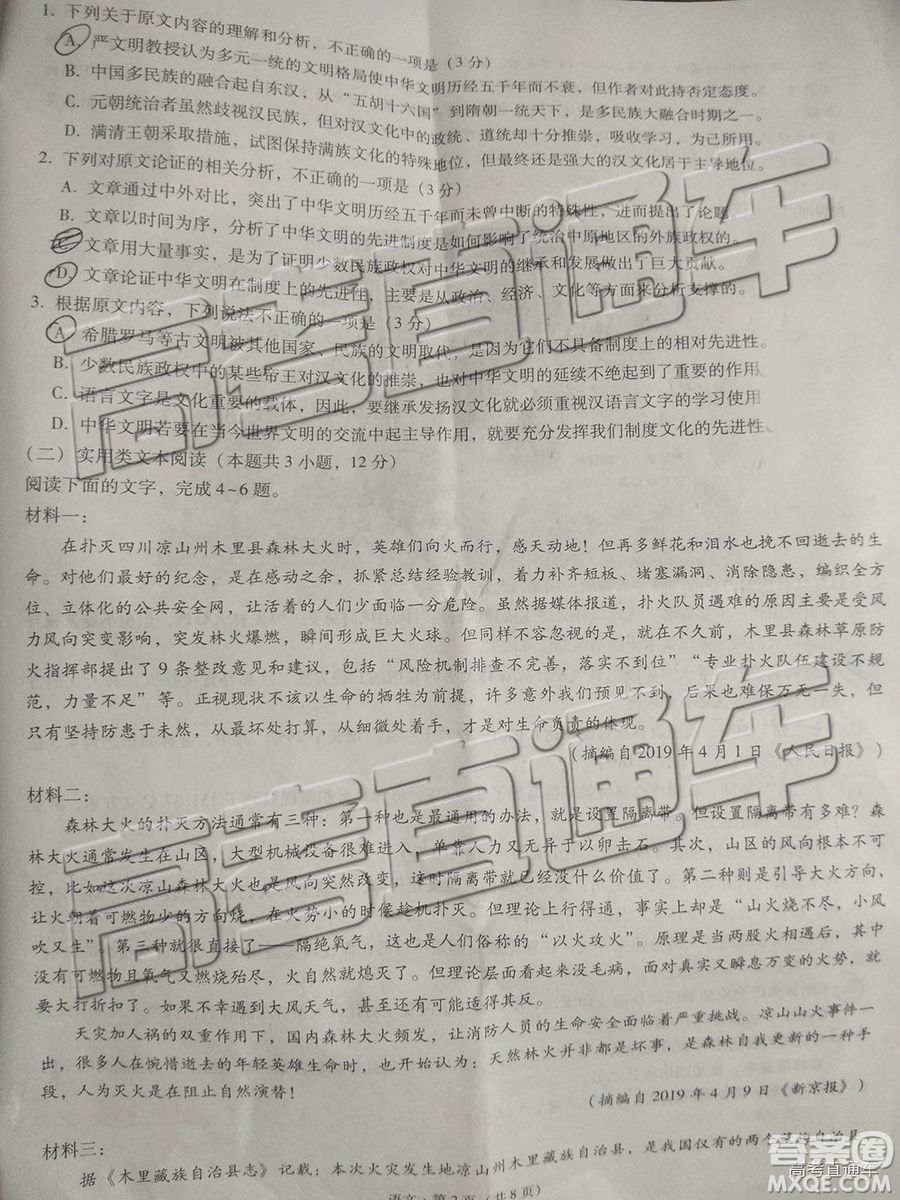 1. 下列关于原文内容的理解和分析，不正确的一项是（3 分）
A. 严文明教授认为多元一统的文明格局使中华文明历经五千年而不衰，但作者对此持否定态度。
B. 中国多民族的融合起自东汉，从“五胡十六国”到隋朝一统天下，是多民族大融合时期之一。
C. 元朝统治者虽然歧视汉民族，但对汉文化中的政统、道统却十分推崇，吸收学习，为己所用。
D. 满清王朝采取措施，试图保持满族文化的特殊地位，但最终还是强大的汉文化居于主导地位。
2. 下列对原文论证的相关分析，不正确的一项是（3 分）
A. 文章通过中外对比，突出了中华文明历经五千年而未曾中断的特殊性，进而提出了论题。
B. 文章以时间为序，分析了中华文明的先进制度是如何影响了统治中原地区的外族政权的。
C. 文章用大量事实，是为了证明少数民族政权对中华文明的继承和发展做出了巨大贡献。
D. 文章论证中华文明在制度上的先进性，主要是从政治、经济、文化等方面来分析支撑的。
3. 根据原文内容，下列说法不正确的一项是（3 分）
A. 希腊罗马等古文明被其他国家、民族的文明取代，是因为它们不具备制度上的相对先进性。
B. 少数民族政权中的某些帝王对汉文化的推崇，也对中华文明的延续不绝起到了重要作用。
C. 语言文字是文化重要的载体，因此，要继承发扬汉文化就必须重视汉语言文字的学习使用
D. 中华文明若要在当今世界文明的交流中起主导作用，就要充分发挥我们制度文化的先进性
（二）实用类文本阅读（本题共 3 小题，12 分）
阅读下面的文字，完成 4~6 题。
材料一：
在扑灭四川凉山州木里县森林大火时，英雄们向火而行，感天动地！但再多鲜花和泪水也挽不回逝去的生
命。对他们最好的纪念，是在感动之余，抓紧总结经验教训，着力补齐短板、堵塞漏洞、消除隐患，编织全方
位、立体化的公共安全网，让活着的人们少面临一分危险。虽然据媒体报道，扑火队员遇难的原因主要是受风
力风向突变影响，突发林火爆燃，瞬间形成巨大火球。但同样不容忽视的是，就在不久前，木里县森林草原防
火指挥部提出了 9 条整改意见和建议，包括“风险机制排查不完善，落实不到位”“专业扑火队伍建设不规
范，力量不足”等。正视现状不该以生命的牺牲为前提，许多意外我们预见不到，后果也难保万无一失，但
只有坚持防患于未然，从最坏处打算，从细微处着手，才是对生命负责的体现。
（摘编自 2019 年 4 月 1 日《人民日报》）
材料二：
森林大火的扑灭方法通常有三种：第一种也是最通用的办法，就是设置隔离带。但设置隔离带有多难？森
林大火通常发生在山区，大型机械设备很难进入，单靠人力又无异于以卵击石。其次，山区的风向根本不可
控，比如这次凉山森林大火也是风向突然改变，这时隔离带就已经没什么价值了。第二种则是引导大火方向，
让火朝着可燃物少的方向烧，在火势小的时候趁机扑灭。但理论上行得通，事实却是“山火烧不尽，小风
吹又生”。第三种就很直接了——隔绝氧气，这也是人们俗称的“以火攻火”。原理是当两股火相遇，中间
没有可燃物且氧气又燃烧殆尽，火自然就熄灭了。但理论层面想起来没毛病，面对真实又瞬息万变的火势，就
要大打折扣了。如果不幸遇到大风天气，甚至还有可能适得其反。
天灾加人祸的双重作用下，国内森林大火频发，让消防人员的生命安全面临着严重挑战。凉山山火事件一
出，很多人在惋惜逝去的年轻英雄生命时，也开始认为：天然林火并非都是坏事，是森林自我更新的一种手
段，人为灭火是在阻止自然演替！
（摘编自 2019 年 4 月 9 日《新京报》）
材料三：
据《木里藏族自治县志》记载：本次火灾发生地凉山州木里藏族自治县，是我国仅有的两个藏族自治县
语文·第 2 页（共 8 页）
高考直通车
高考直通车
答案圈
高考直通车
MXQE.COM